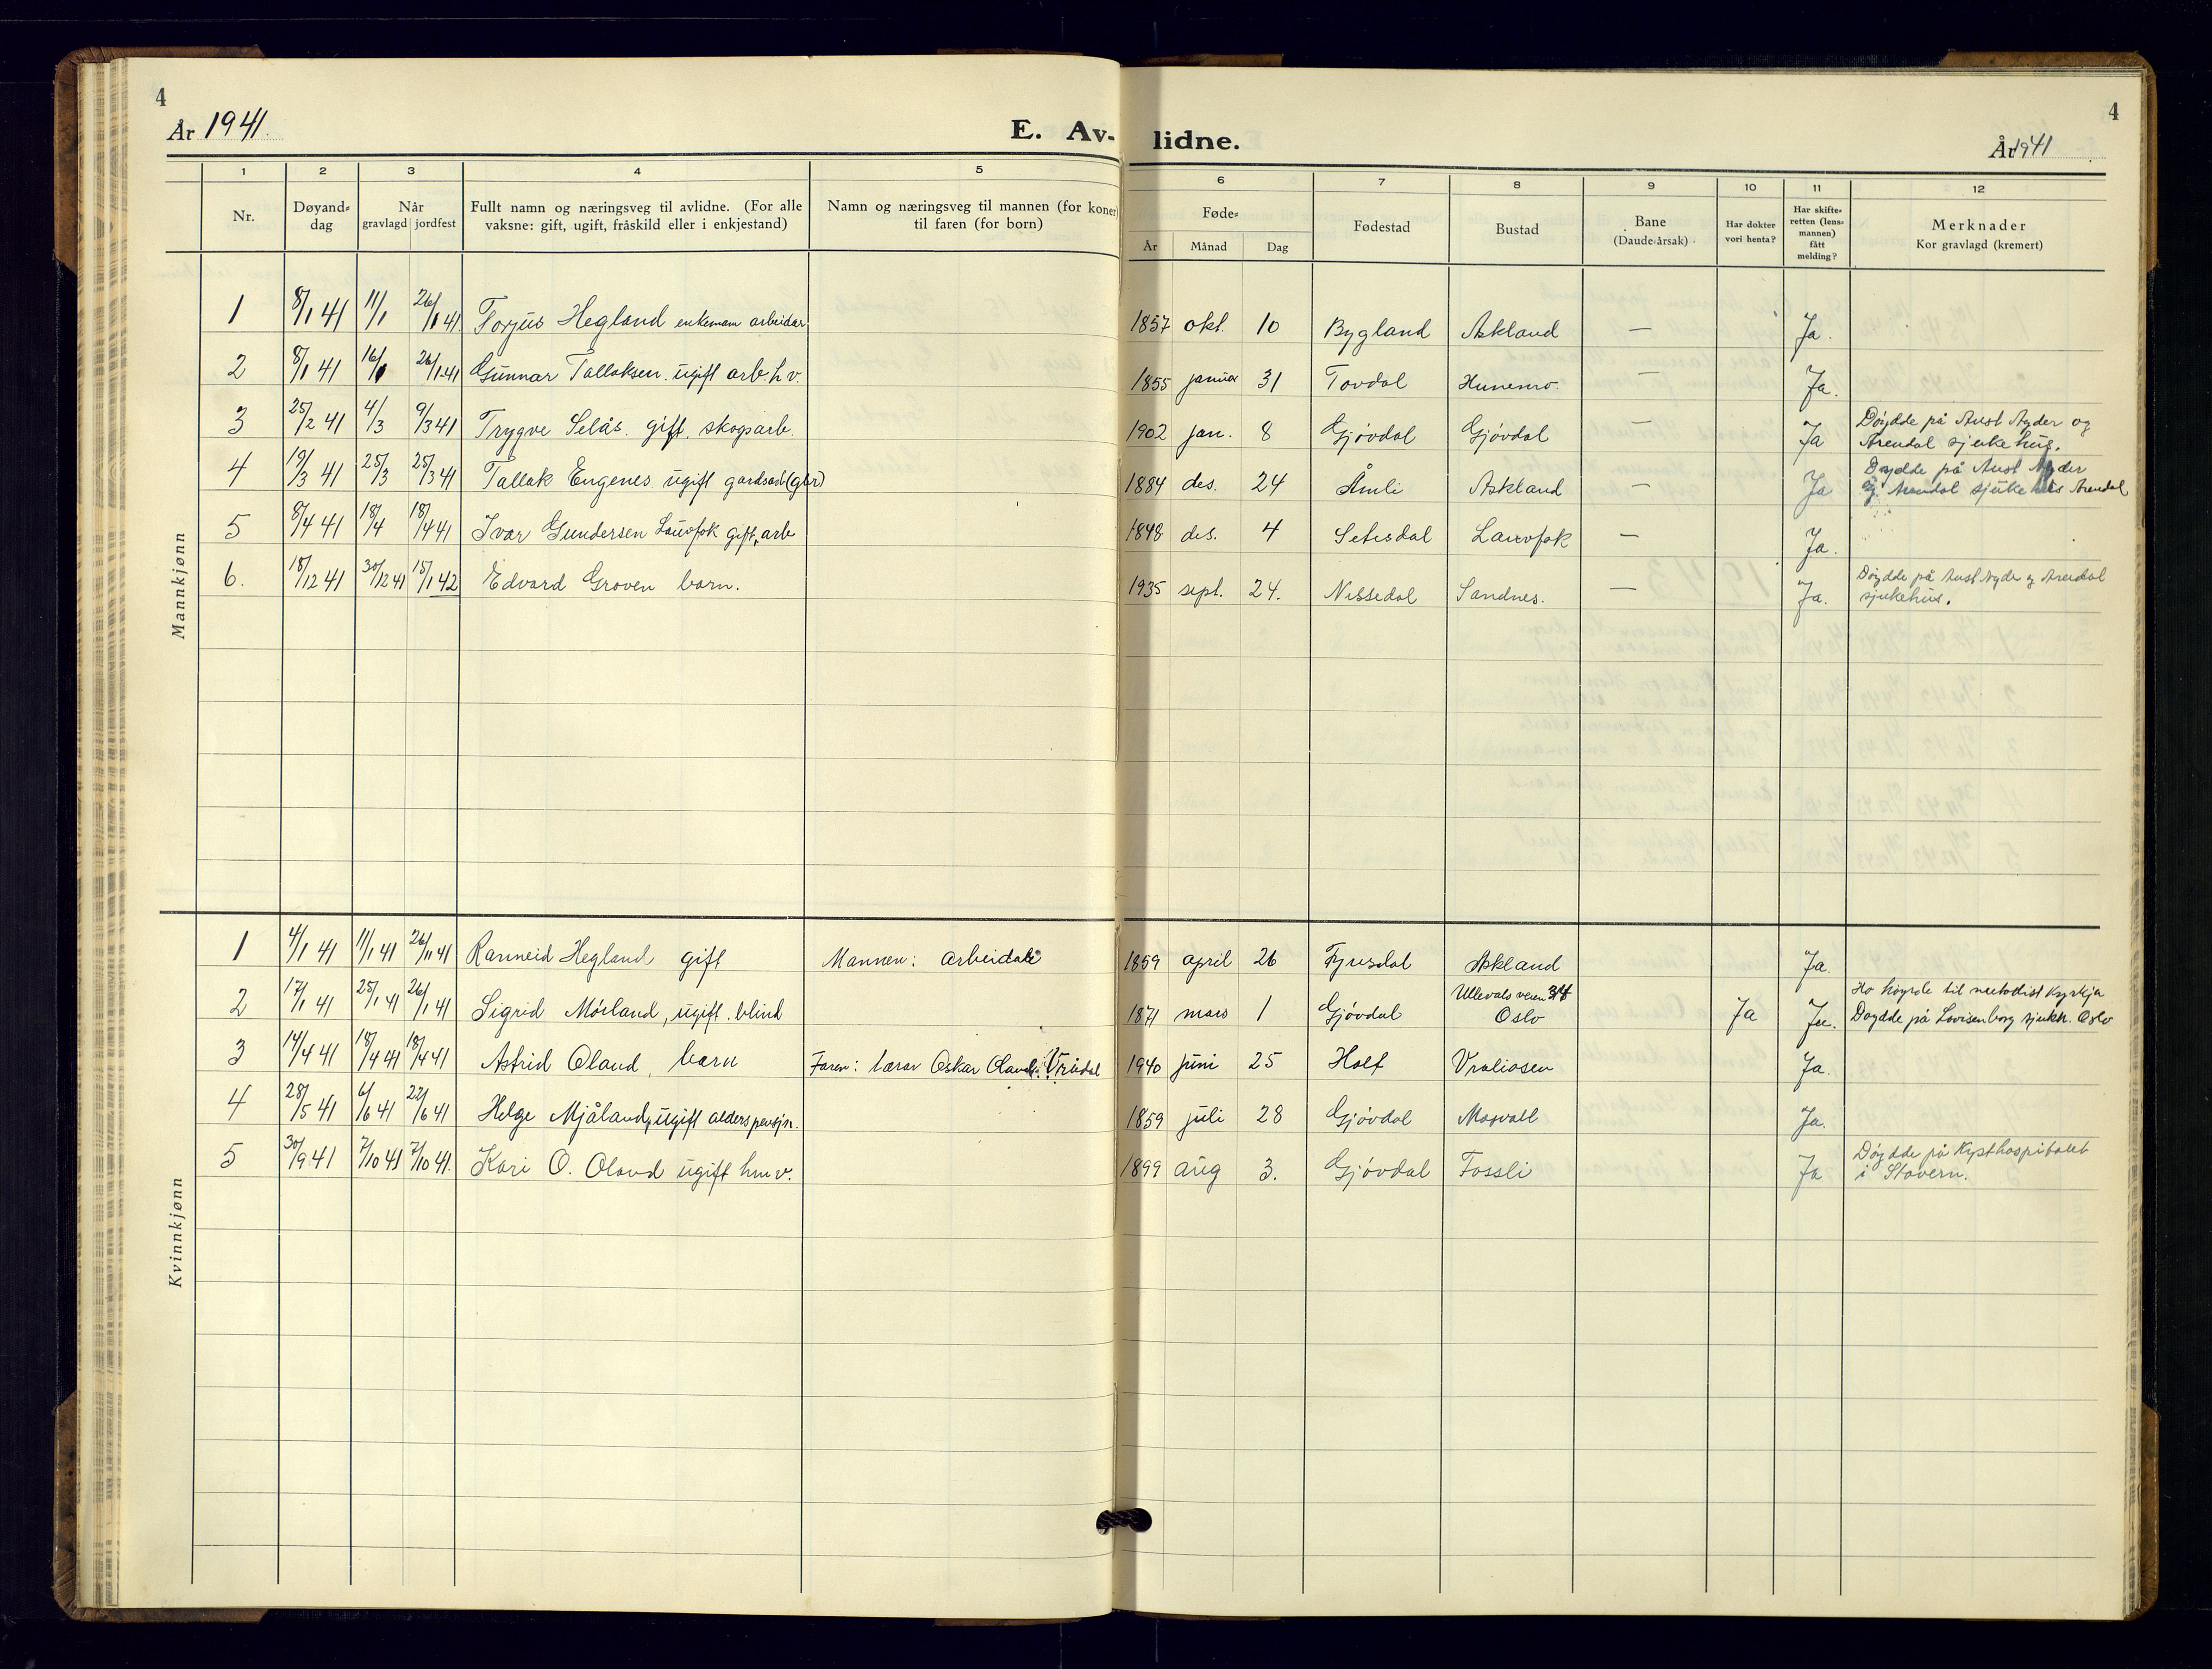 4
År 1941.
E. Av-
1 2 3 4 5
Nr. Døyand-dag Når gravlagd jordfest Fullt namn og næringsveg til avlidne. (For alle vaksne: gift, ugift, fråskild eller i enkjestand) Namn og næringsveg til mannen (for koner) til faren (for born)
4
lidne.
År 1941
6 7 8 9 10 11 12
Føde- År Månad Dag Fødestad Bustad Bane (Daudeårsak) Har dokter vori henta? Har skifte-retten (lens-mannen) fått melding? Merknader Kor gravlagd (kremert)
Mannkjønn
1 8/1 41 11/1 26/1 41 Torjus Hegland enkemann arbeidar 1857 okt. 10 Bygland Askland — Ja.
2 8/1 41 16/1 26/1 41 Gunnar Tallaksen. ugift arb. h v. 1855 januar 31 Tovdal Hunemo. — Ja.
3 25/2 41 4/3 9/3 41 Trygve Selås. gift. skogsarb. 1902 jan. 8 Gjövdal Gjövdal — Ja Döydde på Aust Agder og Arendal sjukehus.
4 19/3 41 25/3 25/3 41 Tallak Engenes ugift gardsarb (gbr) 1884 des. 24 Åmli Askland — Ja Døydde på Aust Agder og Arendal sjukehus Arendal
5 8/4 41 18/4 18/4 41 Ivar Gundersen Lauvfok gift, arb 1848 des. 4 Setesdal Lauvfok — Ja.
6. 18/12 41 30/12 41 15/1 42 Edvard Groven barn. 1935 sept. 24. Nissedal Sandnes. — Ja. Döydde på Aust Agder og Arendal sjukehus.
Kvinnkjønn
1 4/1 41 11/1 41 26/11 41 Ranneid Hegland gift Mannen: arbeidar 1859 april 26 Fyresdal Askland Ja.
2 17/1 41 25/1 41 26/1 41 Sigrid Mörland, ugift. blind 1871 mars 1 Gjövdal Ullevalsveien Oslo Ja Ja. Ho höyrde til metodist kyrkja Døydde på Lovisenberg sjukh. Oslo
3 14/4 41 18/4 41 18/4 41 Astrid Oland, barn Faren: lærar Oskar Oland. Vrådal 1940 juni 25 Holt Vraliosen Ja.
4 28/5 41 6/6 41 22/6 41 Helge Mjåland, ugift alderspensjn. 1859 juli 28 Gjövdal Mosvall Ja.
5 30/9 41 7/10 41 7/10 41. Kari O. Oland ugift hm v. 1899 aug 3. Gjövdal Fossli Ja Döydde på Kysthospitalet i Stavern.